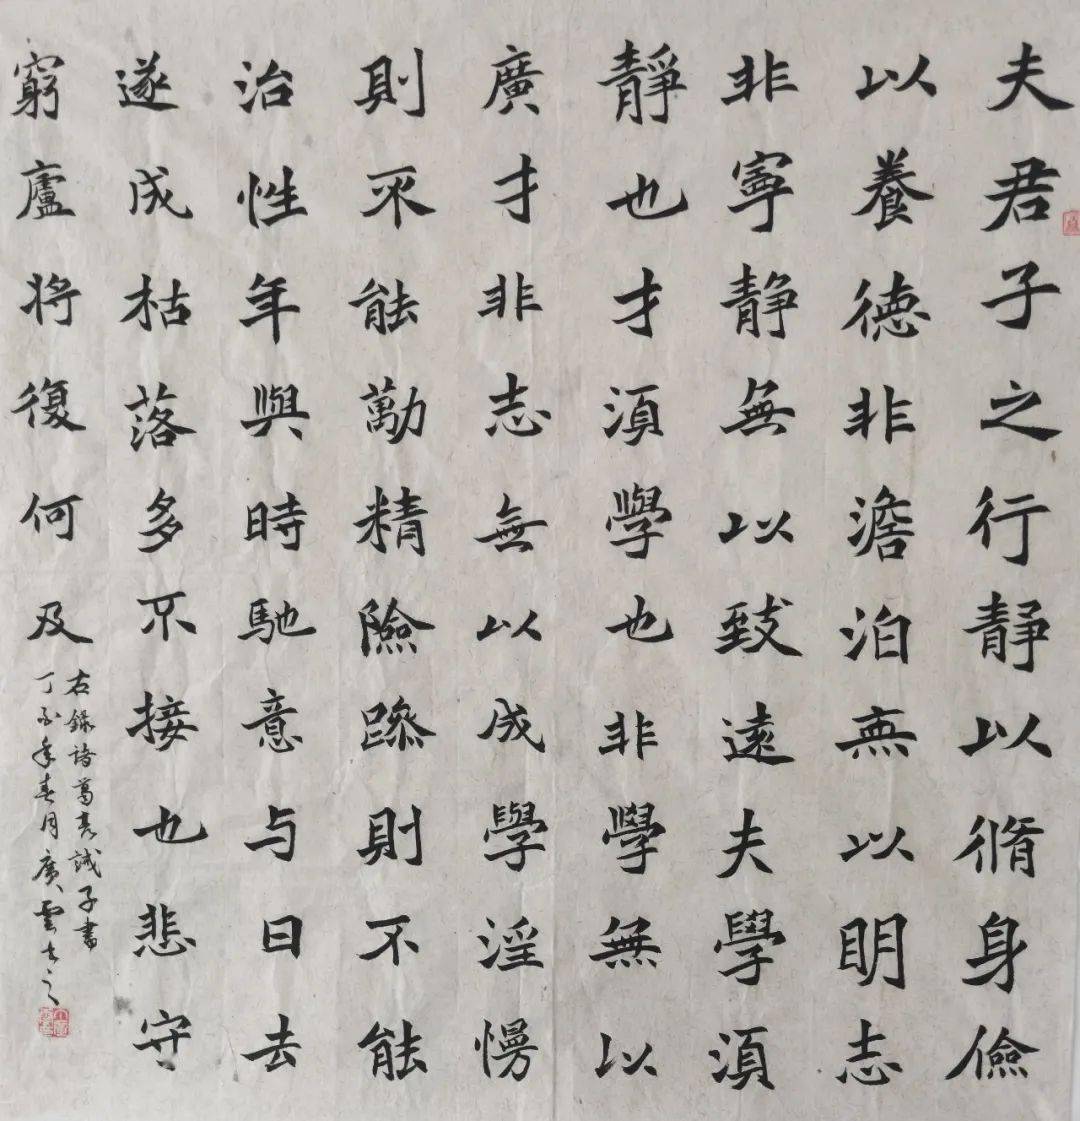 夫君子之行靜以脩身儉
以養德非澹泊無以明志
非寧靜無以致遠夫學湏
靜也才湏學也非學無以
廣才非志無以成學淫慢
則不能勱精險躁則不能
治性年與時馳意与日去
遂成枯落多不接也悲守
窮廬將復何及
右錄諸葛亮誡子書
丁酉年春月廣雲